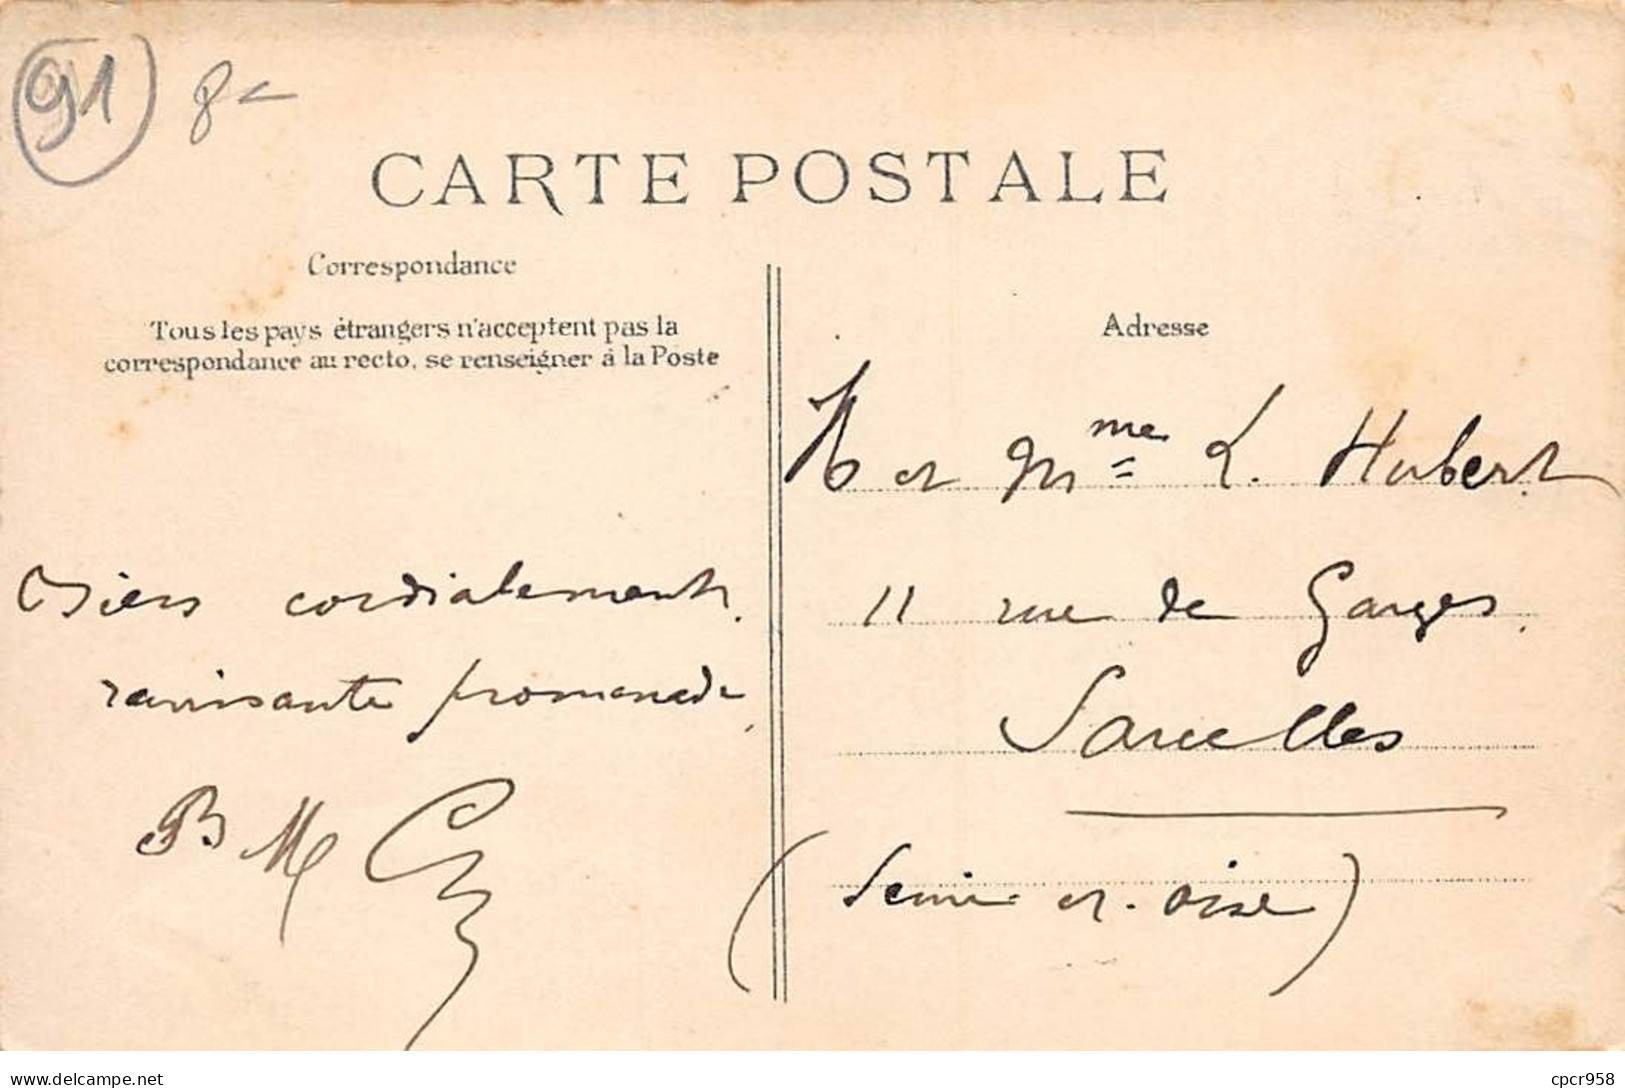 91 8
CARTE POSTALE
Correspondance
Tous les pays étrangers n'acceptent pas la
correspondance au recto, se renseigner à la Poste
Adresse
M et Mme L. Hubert
11 rue de Garges.
Sarcelles
(Seine-et-Oise)
Biens cordialement.
ravissante promenade,
B M
delcampe.net
cpcr958